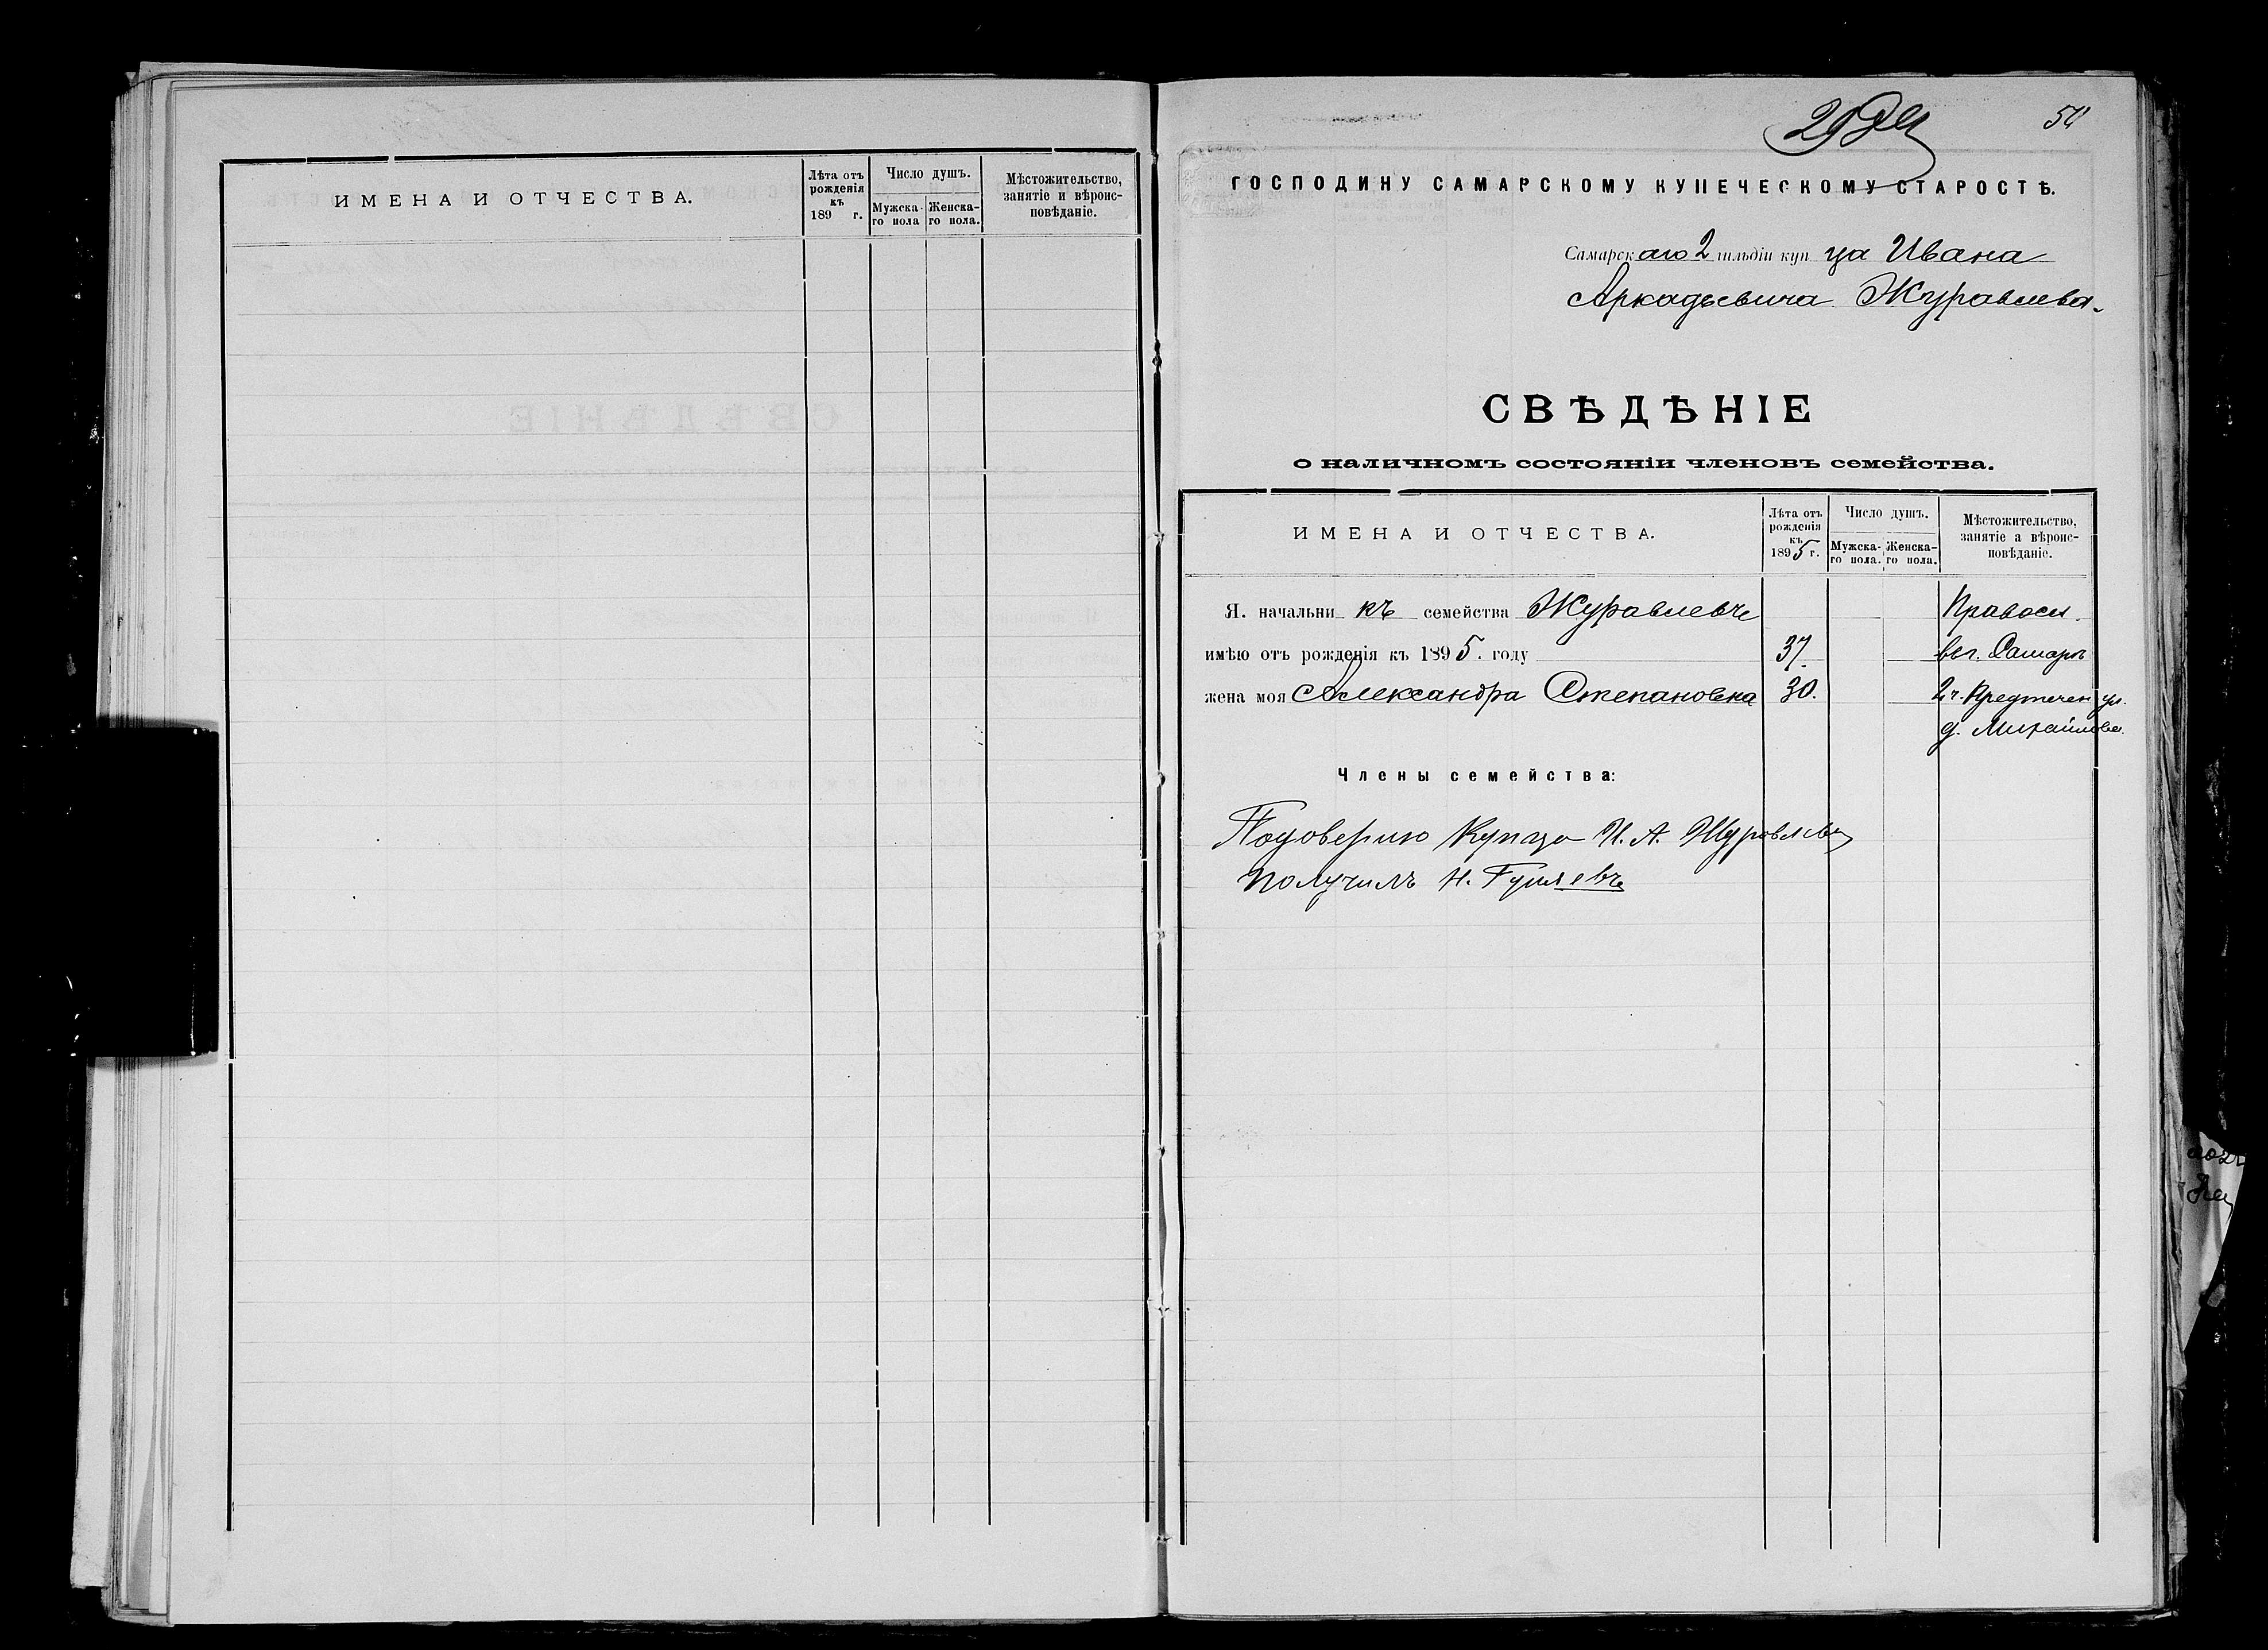 ИМЕНА И ОТЧЕСТВА.
Лѣта отъ рожденія къ 189 г.
Число душъ.
Мужска-го пола
Женска-го пола.
Мѣстожительство, занятіе и вѣроис-повѣданіе.
54
ГОСПОДИНУ САМАРСКОМУ КУПЕЧЕСКОМУ СТАРОСТѢ.
Самарскаго 2 гильдіи купца Ивана
Аркадьевича Журавлева.
СВѢДѢНІЕ
о наличномъ состояніи членовъ семейства.
ИМЕНА И ОТЧЕСТВА.
Лѣта отъ рожденія къ 1895 г.
Число душъ.
Мужска-го пола.
Женска-го пола.
Мѣстожительство, занятіе а вѣроис-повѣданіе.
Я. начальникъ семейства Журавлевъ Правосл.
имѣю отъ рожденія къ 1895. году 37. въ г. Самарѣ
жена моя Александра Степановна 30. 2 ч. Предтечен ул.
д. Михайлова.
Члены семейства:
Подоверию Купца И. А. Журовлева
получилъ Н.